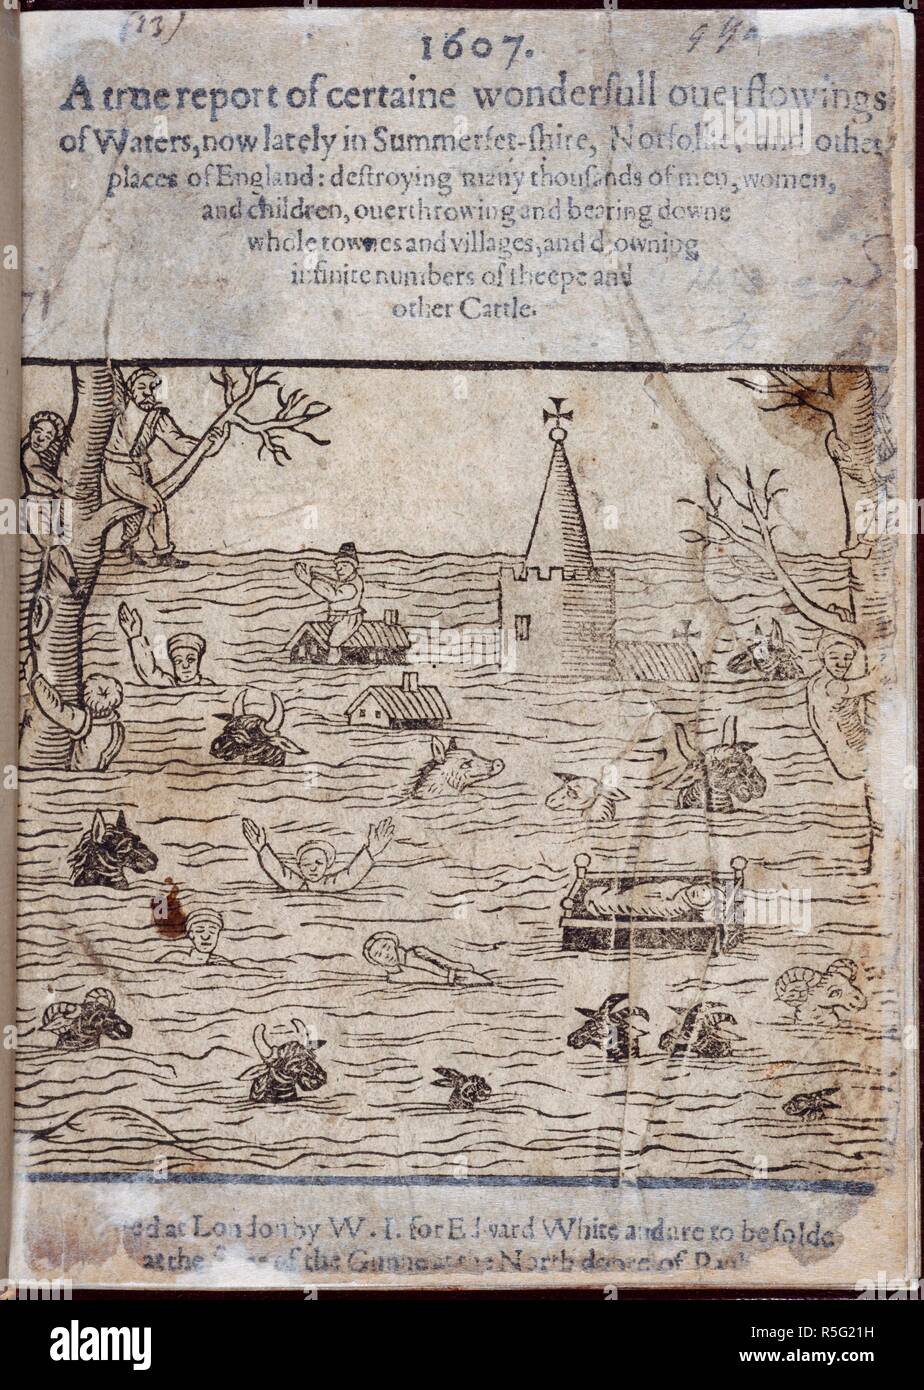 (13)
1607.
A true report of certaine wonderfull ouerflowings
of Waters, now lately in Summerset-shire, Norfolke, and other
places of England: destroying many thousands of men, women,
and children, ouerthrowing and bearing downe
whole townes and villages, and drowning
infinite numbers of sheepe and
other Cattle.
at London by W. I. for Edward White and are to be solde
at the of the Gunne at the North doore of
alamy
Image ID: R5G21H
www.alamy.com